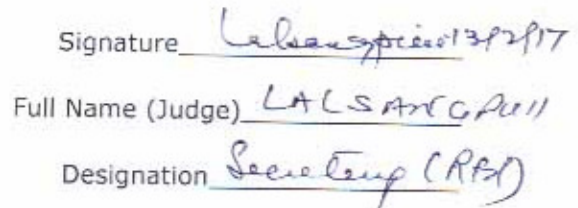 Signature Lalsangpuii 13/2/17
Full Name (Judge) LALSANGPUII
Designation Secretary (RBI)